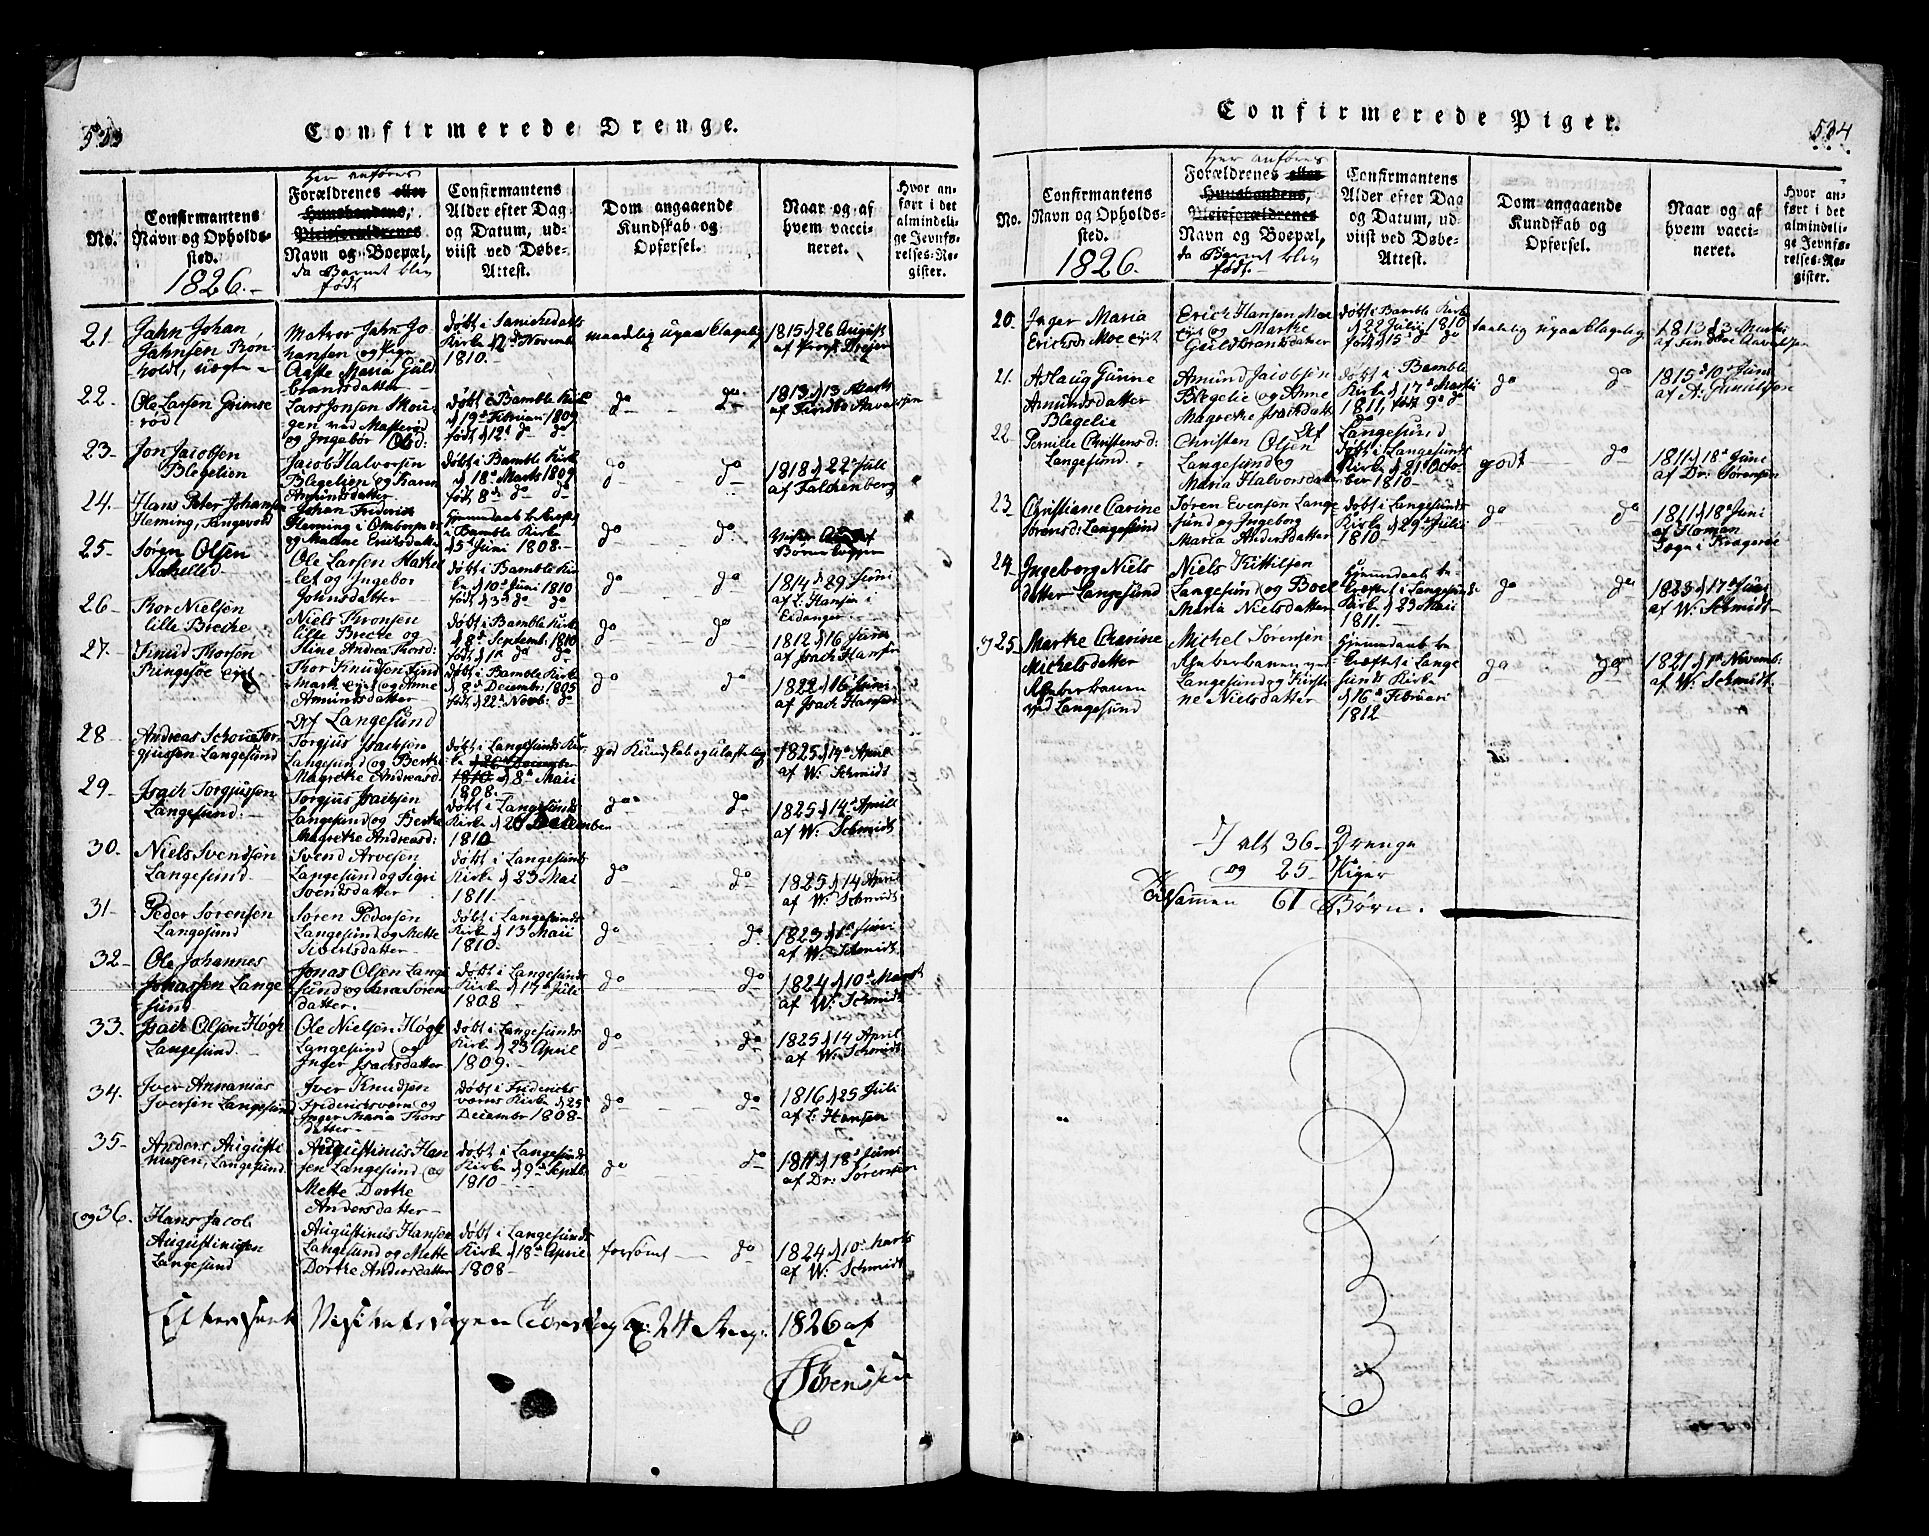 533
Confirmerede Drenge.
No.
Confirmantens
Navn og Opholds-
sted.
1826.
Her anføres
Forældrenes eller
Huusbondens,
Pleieforældrenes
Navn og Boepæl,
da Barnet blev
født
Confirmantens
Alder efter Dag
og Datum, ud-
viist ved Døbe-
Attest.
Dom angaaende
Kundskab og
Opførsel.
Naar og af
hvem vacci-
neret.
Hvor an-
ført i det
almindeli-
ge Jevnfø-
relses-Re-
gister.
21.
Jahn Johan
Jahnsen Rön-
holdt, uægte
Matros Jahn Jo-
hansen og Pige
Maria Guld
bransdatter
døbt i Sanikedals
Kirke d 12 Novemb
1810.
maadelig ugaaklagelig
1815 d 26 August
af Provst Dreier
22
Ole Larsen Grimse
röd
Lars Jonsen Skou
gen ved Masteröd
og Ingebör Olsd:
døbt i Bamble Kirke
d 19 Februari 1809
født d 12 do do
do do
1813 d 13 Marts
af Findbo Aavaldsen
23
Jon Jacobsen
Blegelien
Jacob Halvorsen
Blegelien og Karen
Amundsdatter
døbt i Bamble Kirk
d 18 Marts 1809
født 8 do do
do do
1818 d 22 Juli
af Falckenberg
24.
Hans Peter Johansen
Fleming, Tangevold
Johan Friderich
Fleming i Omborsnes
og Malene Erichsdatter
i Bamble Kirke
d 5 Juni 1808.
do do
25
Søren Olsen
Ole Larsen
og Ingebor
Johnsdatter
døbt i Bamble Kir
ke d 10 Juni 1810
født d 3 do do
do do
1814 d 29 Juni
af L: Hansen i
Eidanger
26
Thor Nielsen
lille Brekke
Niels Thronsen
lille Brekke og
Stine Andrea Thorsd:
døbt i Bamble Kirke
d 8 Septemb: 1810
født d 1 do do
do do
1812 d 16 Juni
af Isach Hansen
27
Knud Thorsen
Ringesøe eyet
Thor Knudsen Find
Mark eyet og Anne
Amundsdatter
døbt i Bamble Kirke
d 8 Decembr 1805
født d 22 Novb: do
do do
1822 d 16 Juni
af Isach Hansen
Af Langesund
28
Andreas Tor-
gjussen Langesund
Torgjus Isachsen
Langesund og Berthe
Magrethe Andreasd:
døbt i Langesunds Kir-
ke d 26 December
1810 d 8 Maii
1808.
god Kundskab og ulastelig
1825 d 14 April
af W: Schmidt
29
Isach Torgjussen
Langesund.
Torgjus Isachsen
Langesund og Berthe
Magrethe Andreasd:
døbt i Langesunds
Kirke d 26 December
1810
do do
1825 d 14 April
af W: Schmidt
30.
Niels Svendsen
Langesund.
Svend Arvesen
Langesund og Sigri
Svendsdatter
døbt i Langesunds
Kirke d 23 Mai
1811
do do
1825 d 14 April
af W. Schmidt
31
Peder Sørensen
Langesund
Søren Pedersen
Langesund og Mette
Sivertsdatter
døbt i Langesunds
Kirke d 13 Maii
1810
do do
1823 d 1 Juni
af W. Schmidt
32
Ole Johannes
Johassen Lange
sund
Jonas Olsen Lange
sund og Sara Sørens
datter.
døbt i Langesunds
Kirke d 17 Juli
1808
do do
1824 d 10 Marts
af W. Schmidt
33.
Isach Olsen Høgh
Langesund.
Ole Nielsen Høgh
Langesund og
Inger Isachsdatter
døbt i Langesunds
Kirke d 23 April
1809.
do do
1825 d 14 April
af W. Schmidt
34.
Iver Annanias
Iversen Langesund
Iver Knudsen
Friderichsværn og
Inger Maria Thors
datter
døbt i Friderichs
værns Kirke d 25
Decembr 1808
do do
1816 d 25 Juli
af L: Hansen
35
Anders Augusti
nussen, Langesund
Augustinus Han
sen Langesund og
Mette Dorthe
Andersdatter
døbt i Langesunds
Kirke d 9 Septbr
1810
do do
1811 d 18 Juni
af Dr: Sørensen
og 36.
Hans Jacob
Augustinusen
Langesund
Augustinus Hansen
Langesund og Mette
Dorthe Andersdatter
døbt i Langesunds
Kirke d 18 April
1808
forsømt do
1824 d 10 Marts
af W. Schmidt
24 Aug: 1826 af
Sørenssen
534
Confirmerede Piger.
No.
Confirmantens
Navn og Opholds-
sted.
1826.
Her anføres
Forældrenes eller
Huusbondens,
Pleieforældrenes
Navn og Boepæl,
da Barnet blev
født.
Confirmantens
Alder efter Dag
og Datum, ud-
viist ved Døbe-
Attest.
Dom angaaende
Kundskab og
Opførsel.
Naar og af
hvem vacci-
neret.
Hvor an-
ført i det
almindeli-
ge Jevnfø-
relses-Re-
gister.
20.
Inger Maria
Ericksd: Moe eyet
Erich Hansen Moe
eyet og Marthe
Guldbransdatter
døbt i Bamble Kirke
d 22 Julii 1810
født d 15 do do
taalelig ugaaklagelig
1813 d 3 Marts
af Findboe Aavaldsen
21.
Aslaug Gurine
Amundsdatter
Blegelie
Amund Jacobsen
Blegelie og Anne
Magrethe Isachsdatter
døbt i Bamble
Kirke d 17 Martii
1811, født 9 do
do do
1815 d 10 Juni
af A: Gunulfsen
Af Langesund
22
Pernille Christensd:
Langesund.
Christen Olsen
Langesund og
Maria Halvorsdatter
døbt i Langesunds
Kirke d 21 Octo-
ber 1810
godt do
1811 d 18 Juni
af Dr: Sørensen
23
Christiane Carine
Sørensd: Langesund
Søren Evensen Lange
sund og Ingeborg
Maria Andersdatter
døbt i Langesunds
Kirke d 29 Julii
1810
do do
1811 d 18 Juni
af Homan
Læge i Kragerøe
24
Ingeborg Niels
datter Langesund
Niels Kittilsen
Langesund og Boel
Maria Nielsdatter
hjemmedaab be
kræftet i Langesunds
Kirke d 23 Maii
1811.
do do
1823 d 17 Juni
af W. Schmidt
og 25
Marthe Charine
Michelsdatter
ved Langesund
Michel Sørensen
ved
Langesund og Kirsti
ne Nielsdatter
hjemmedaab be
kræftet i Lange
sunds Kirke
d 16 Februari
1812
do do
1821 d 1 Novemb:
af W. Schmidt
I alt 36 Drenge
og 25 Piger
Tilsamen 61 Børn.